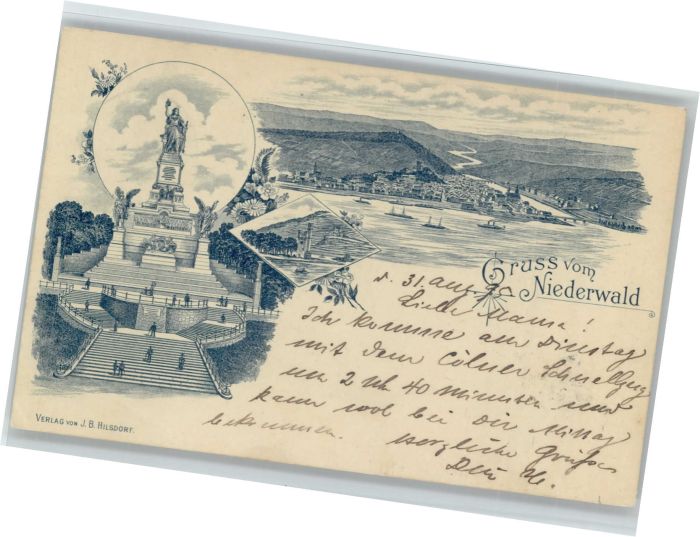 Gruss vom
Niederwald
d. 31. Aug. 90
Liebe Mama!
Ich komme am Dinstag
mit dem Cölner Schnellzug
um 2 Uh 40 Minuten und
kann wol bei Dir Mittag
bekommen. Herzliche Grüße
Dein
VERLAG VON J. B. HILSDORF.